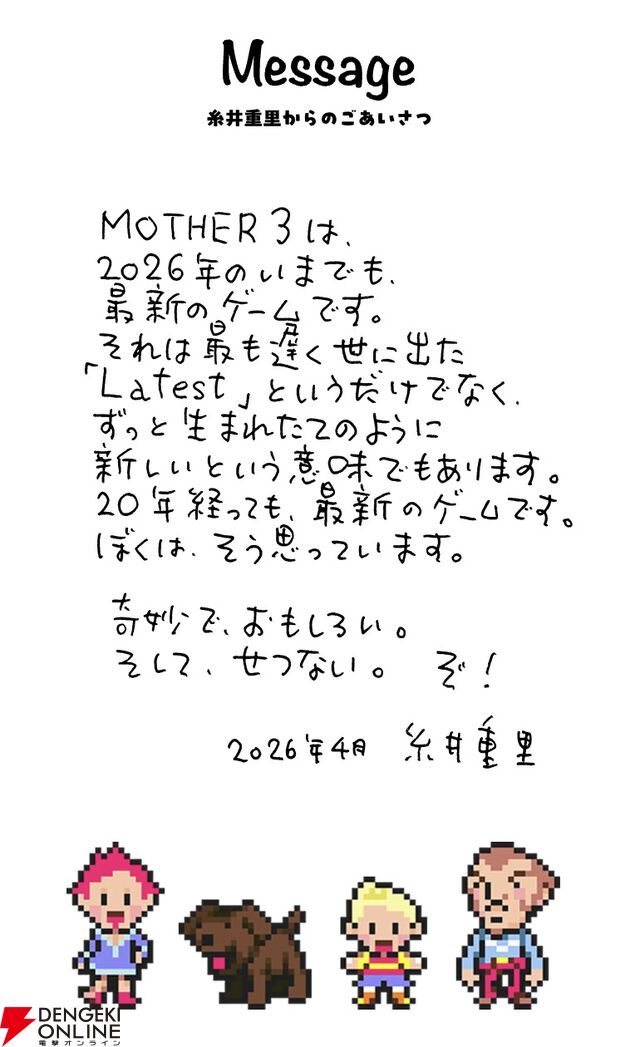 Message
糸井重里からのごあいさつ
MOTHER 3は、
2026年のいまでも、
最新のゲームです。
それは最も遅く世に出た
「Latest」というだけでなく、
ずっと生まれたてのように
新しいという意味でもあります。
20年経っても、最新のゲームです。
ぼくは、そう思っています。
奇妙で、おもしろい。
そして、せつない。 ぞ!
2026年4月 糸井重里
DENGEKI
ONLINE
電撃オンライン